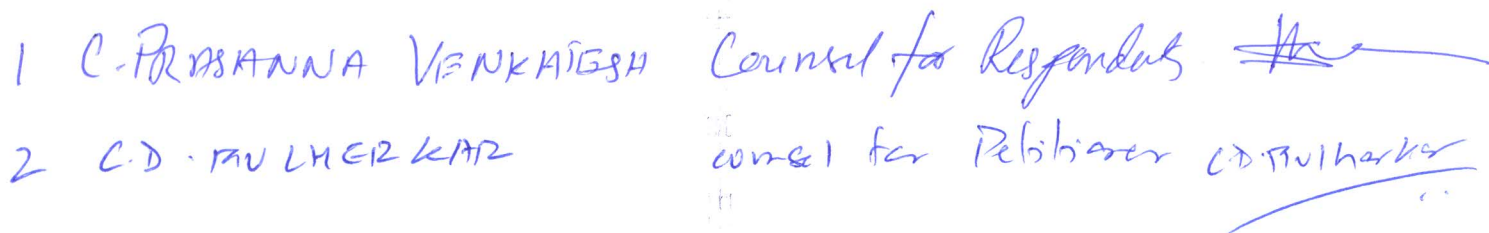 1 C. PRASANNA VENKATESH Counsel for Respondents
2 C.D. MULHERKAR counsel for Petitioner C.D. Mulherkar